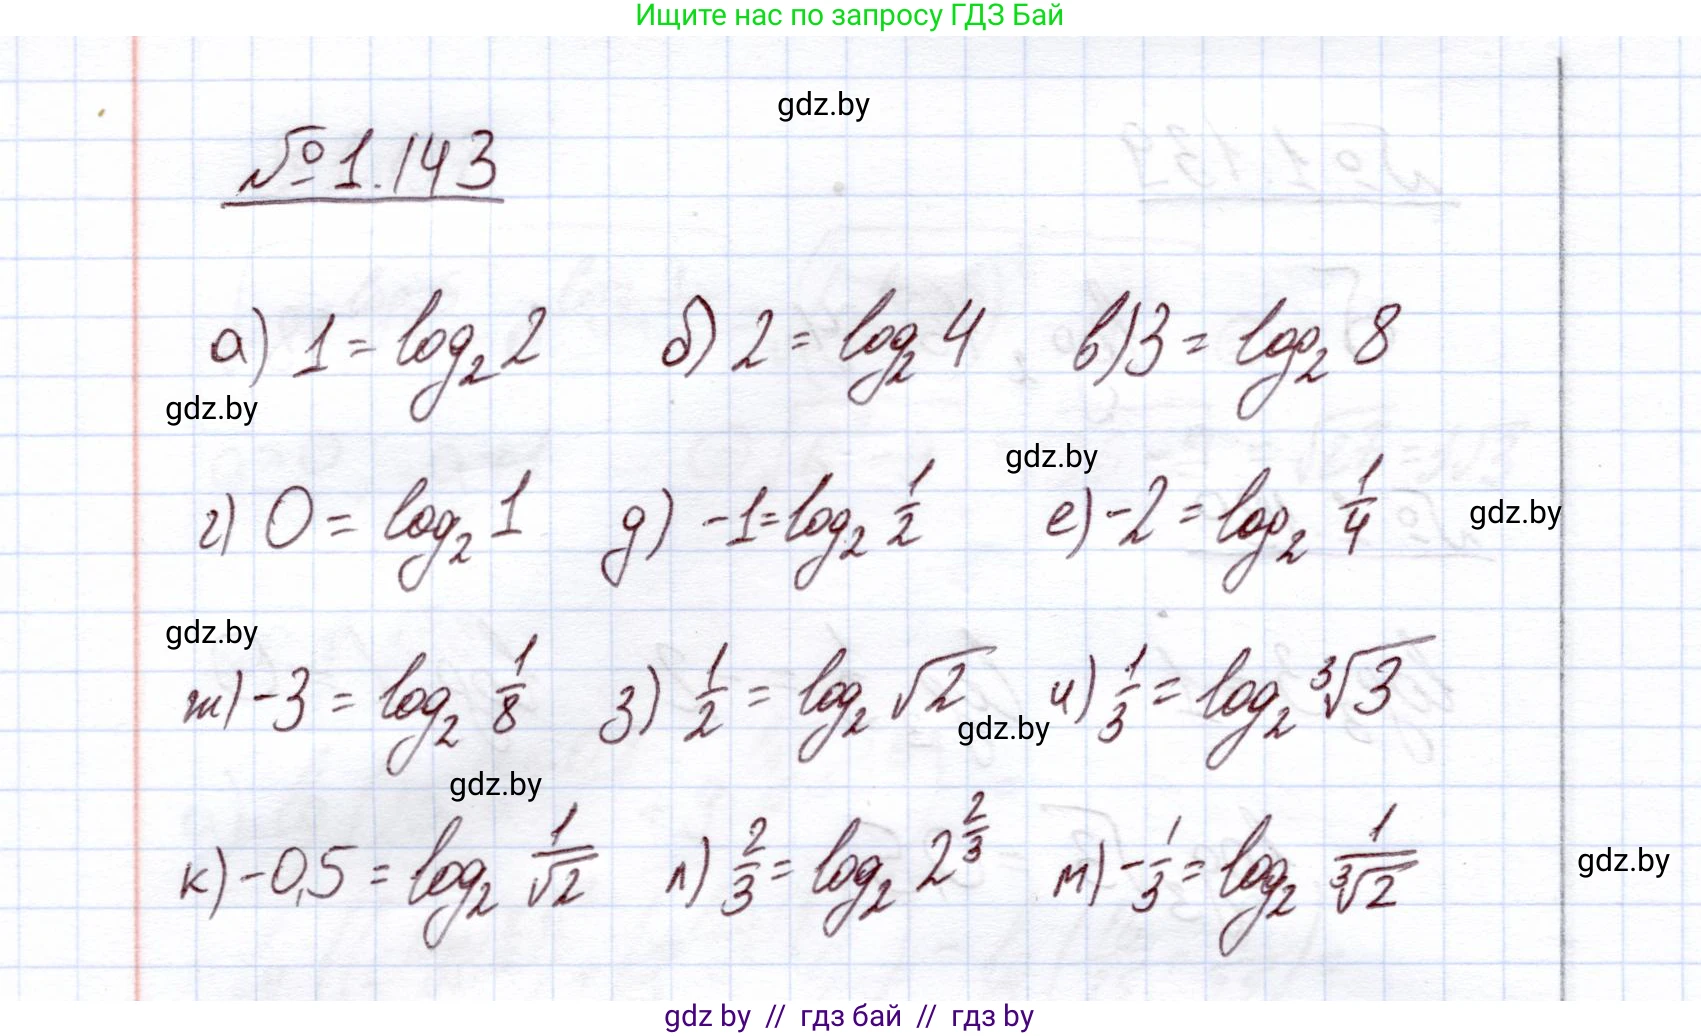 Ищите нас по запросу ГДЗ Бай
gdz.by
№1.143
а) 1 = log₂ 2   б) 2 = log₂ 4   в) 3 = log₂ 8
gdz.by
gdz.by
г) 0 = log₂ 1   д) -1 = log₂ 1/2   е) -2 = log₂ 1/4
gdz.by
gdz.by
ж) -3 = log₂ 1/8   з) 1/2 = log₂ √2   и) 1/3 = log₂ ³√3
gdz.by
gdz.by
к) -0,5 = log₂ 1/√2   л) 2/3 = log₂ 2^(2/3)   м) -1/3 = log₂ 1/³√2
gdz.by
gdz by // гдз бай // гдз by